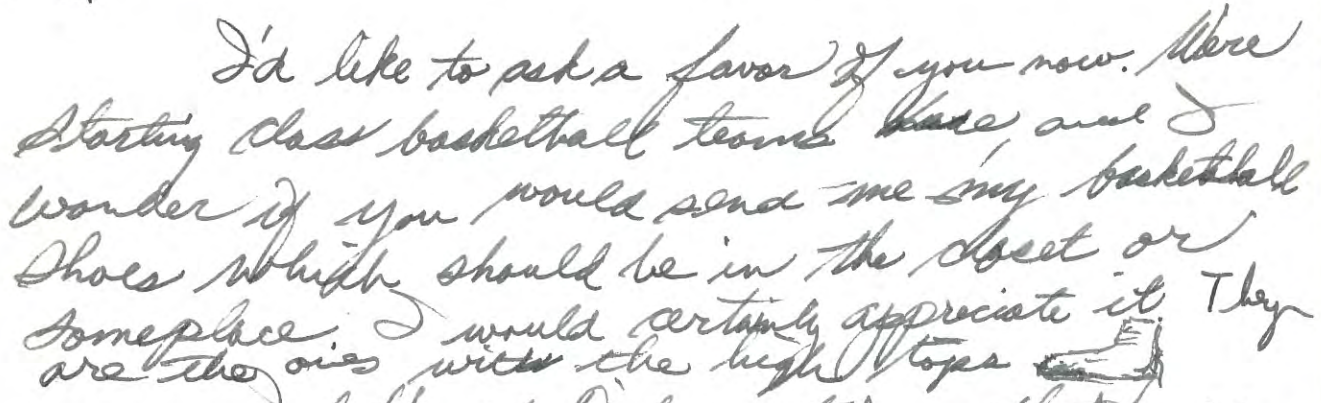 I'd like to ask a favor of you now. We're
starting class basketball teams here, and I
wonder if you would send me my basketball
shoes which should be in the closet or
someplace. I would certainly appreciate it. They
are the ones with the high tops